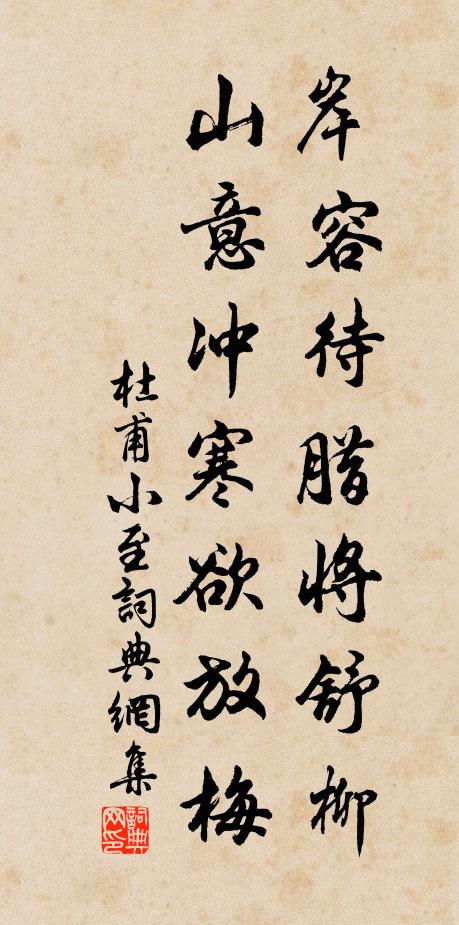 岸容待腊将舒柳
山意冲寒欲放梅
杜甫小至詞典網集
詞典网印